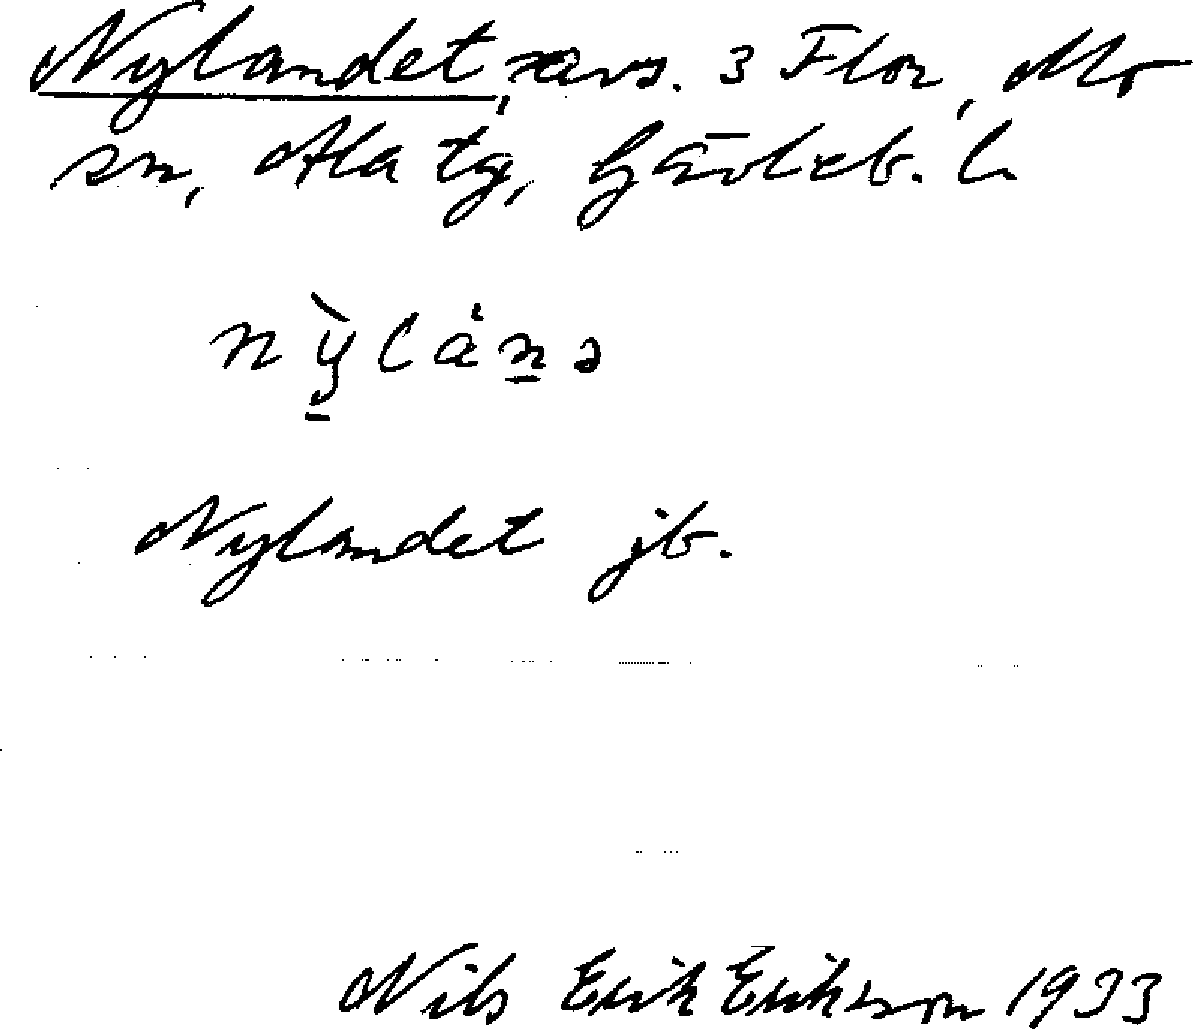 Nylandet, xavs. 3 Flor, Mo
sn, Ala tg, Gävleb. l.
nỳlánə
Nylandet jb.
Nils Erik Erikson 1933